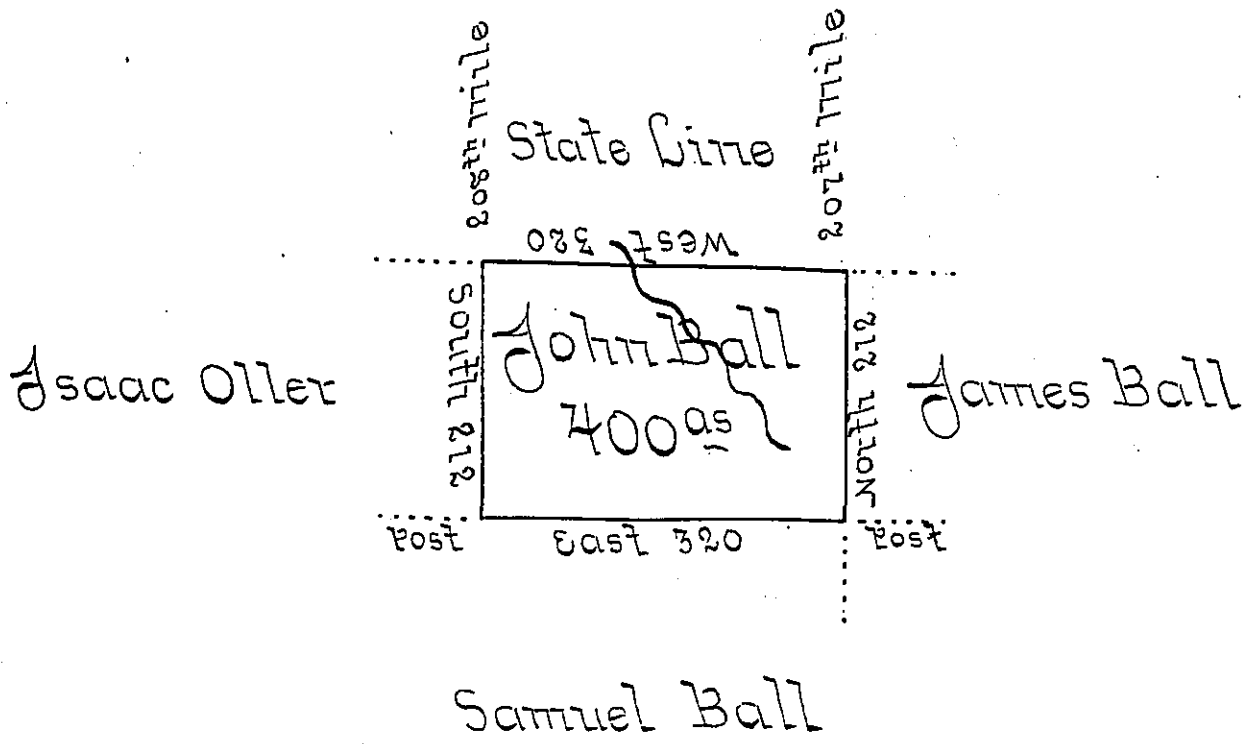 208th mile
State Line
207th mile
West 320
South 212
John Ball
400as
North 212
Isaac Oller
James Ball
Post
East 320
Post
Samuel Ball